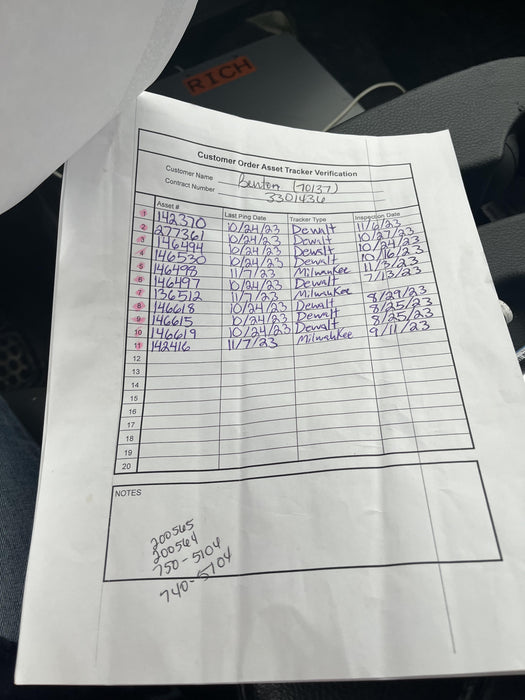 RICH
Customer Order Asset Tracker Verification
Customer Name Benton (70137)
Contract Number 3301436
Asset # Last Ping Date Tracker Type Inspection Date
1 142370 10/24/23 Dewalt 11/6/23
2 277361 10/24/23 Dewalt 10/27/23
3 146494 10/24/23 Dewalt 10/24/23
4 146530 10/24/23 Dewalt 10/16/23
5 146498 11/7/23 Milwaukee 11/3/23
6 146497 10/24/23 Dewalt 7/13/23
7 136512 11/7/23 Milwaukee
8 146618 10/24/23 Dewalt 8/29/23
9 146615 10/24/23 Dewalt 8/25/23
10 146619 10/24/23 Dewalt 8/25/23
11 142416 11/7/23 Milwaukee 9/11/23
12
13
14
15
16
17
18
19
20
NOTES
200565
200564
750-5104
740-5704